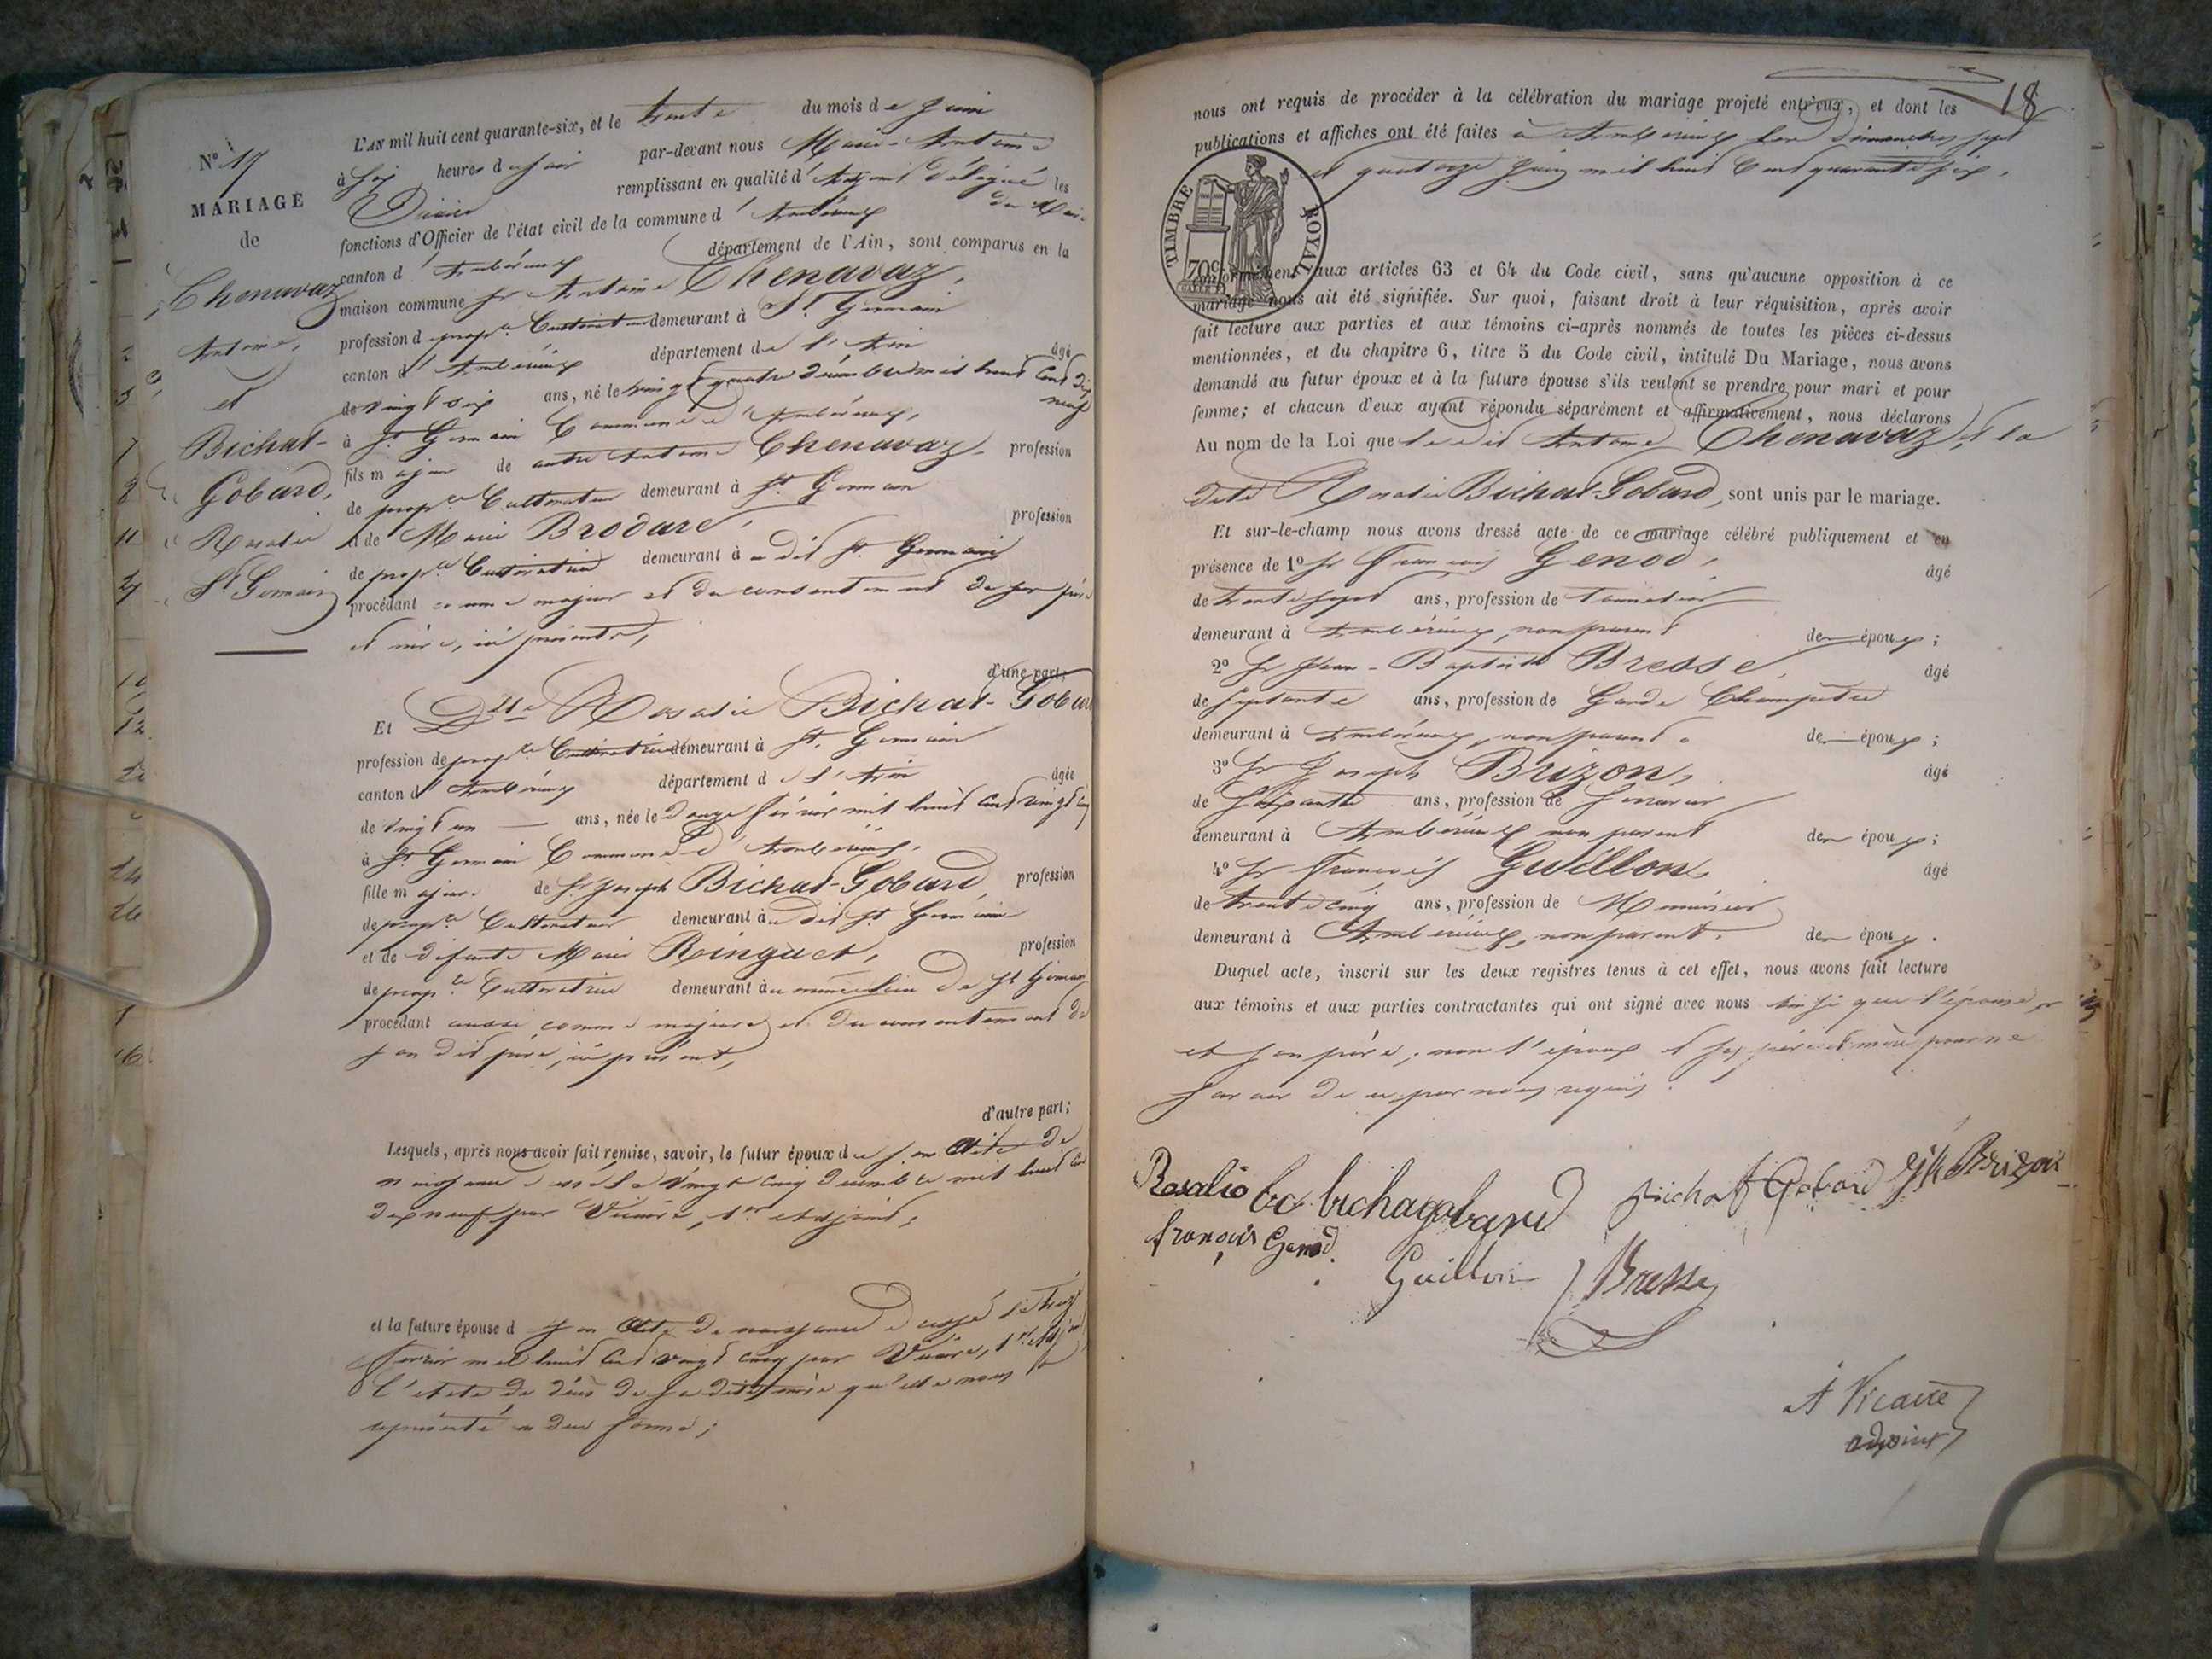 N° 17
MARIAGE
de
Chenavaz
Antoine,
et
Bichat-
Gobard,
Rosalie
St Germain
L'AN mil huit cent quarante-six, et le trente du mois de Juin
à six heures du soir par-devant nous Marie-Antoine
remplissant en qualité d'Adjoint délégué les
du Maire
fonctions d'Officier de l'état civil de la commune d'Ambérieux
canton d'Ambérieux département de l'Ain, sont comparus en la
maison commune Sr Antoine Chenavaz,
profession de propre Cultivateur demeurant à St Germain
canton d'Ambérieux département de l'Ain âgé
de vingt six ans, né le vingt quatre décembre mil huit cent dix
neuf
à St Germain Commune d'Ambérieux,
fils majeur de autre Antoine Chenavaz, profession
de propre Cultivateur demeurant à St Germain
et de Marie Brodare, profession
de propre Cultivatrice demeurant au dit St Germain
procédant comme majeur et du consentement de ses père
et mère, ici présents,
d'une part;
Et Dlle Rosalie Bichat-Gobard
profession de propre Cultivatrice demeurant à St Germain
canton d'Ambérieux département de l'Ain âgée
de vingt un ans, née le douze février mil huit cent vingt cinq
à St Germain Commune d'Ambérieux,
fille majeure de Sr Joseph Bichat-Gobard, profession
de propre Cultivateur demeurant au dit St Germain
et de défunte Marie Ringuet, profession
de propre Cultivatrice demeurant au même lieu de St Germain
procédant aussi comme majeure et du consentement de
son dit père, ici présent,
d'autre part;
Lesquels, après nous avoir fait remise, savoir, le futur époux de son Acte de
naissance dressé le vingt cinq décembre mil huit cent
dix neuf par Vicaire, 1er Adjoint;
et la future épouse d son Acte de naissance dressé le treize
février mil huit cent vingt cinq par Vicaire, 1er Adjoint
l'acte de décès de sa dite mère qu'elle nous a
représenté en due forme;
18
nous ont requis de procéder à la célébration du mariage projeté entr'eux, et dont les
publications et affiches ont été faites à Ambérieux les dimanches sept
et quatorze Juin mil huit cent quarante six,
TIMBRE ROYAL
70c
conformément aux articles 63 et 64 du Code civil, sans qu'aucune opposition à ce
mariage nous ait été signifiée. Sur quoi, faisant droit à leur réquisition, après avoir
fait lecture aux parties et aux témoins ci-après nommés de toutes les pièces ci-dessus
mentionnées, et du chapitre 6, titre 5 du Code civil, intitulé Du Mariage, nous avons
demandé au futur époux et à la future épouse s'ils veulent se prendre pour mari et pour
femme; et chacun d'eux ayant répondu séparément et affirmativement, nous déclarons
Au nom de la Loi que le dit Antoine Chenavaz, et la
dite Rosalie Bichat-Gobard, sont unis par le mariage.
Et sur-le-champ nous avons dressé acte de ce mariage célébré publiquement et en
présence de 1° Sr François Genod, âgé
de trente sept ans, profession de Tonnelier
demeurant à Ambérieux, non parent des époux;
2° Sr Jean-Baptiste Bresse, âgé
de septante ans, profession de Garde Champêtre
demeurant à Ambérieux, non parent. des époux;
3° Sr Joseph Brizon, âgé
de soixante ans, profession de Serrurier
demeurant à Ambérieux non parent des époux;
4° Sr François Guillon, âgé
de trente cinq ans, profession de Menuisier
demeurant à Ambérieux, non parent. des époux.
Duquel acte, inscrit sur les deux registres tenus à cet effet, nous avons fait lecture
aux témoins et aux parties contractantes qui ont signé avec nous ainsi que l'épouse
et son père; non l'époux et ses père et mère pour ne
savoir de ce par nous requis.
Rosalie bichagobard bichat Gobard Jh Brizon
françois Genod.
Guillon Bresse
A Vicaire
adjoint